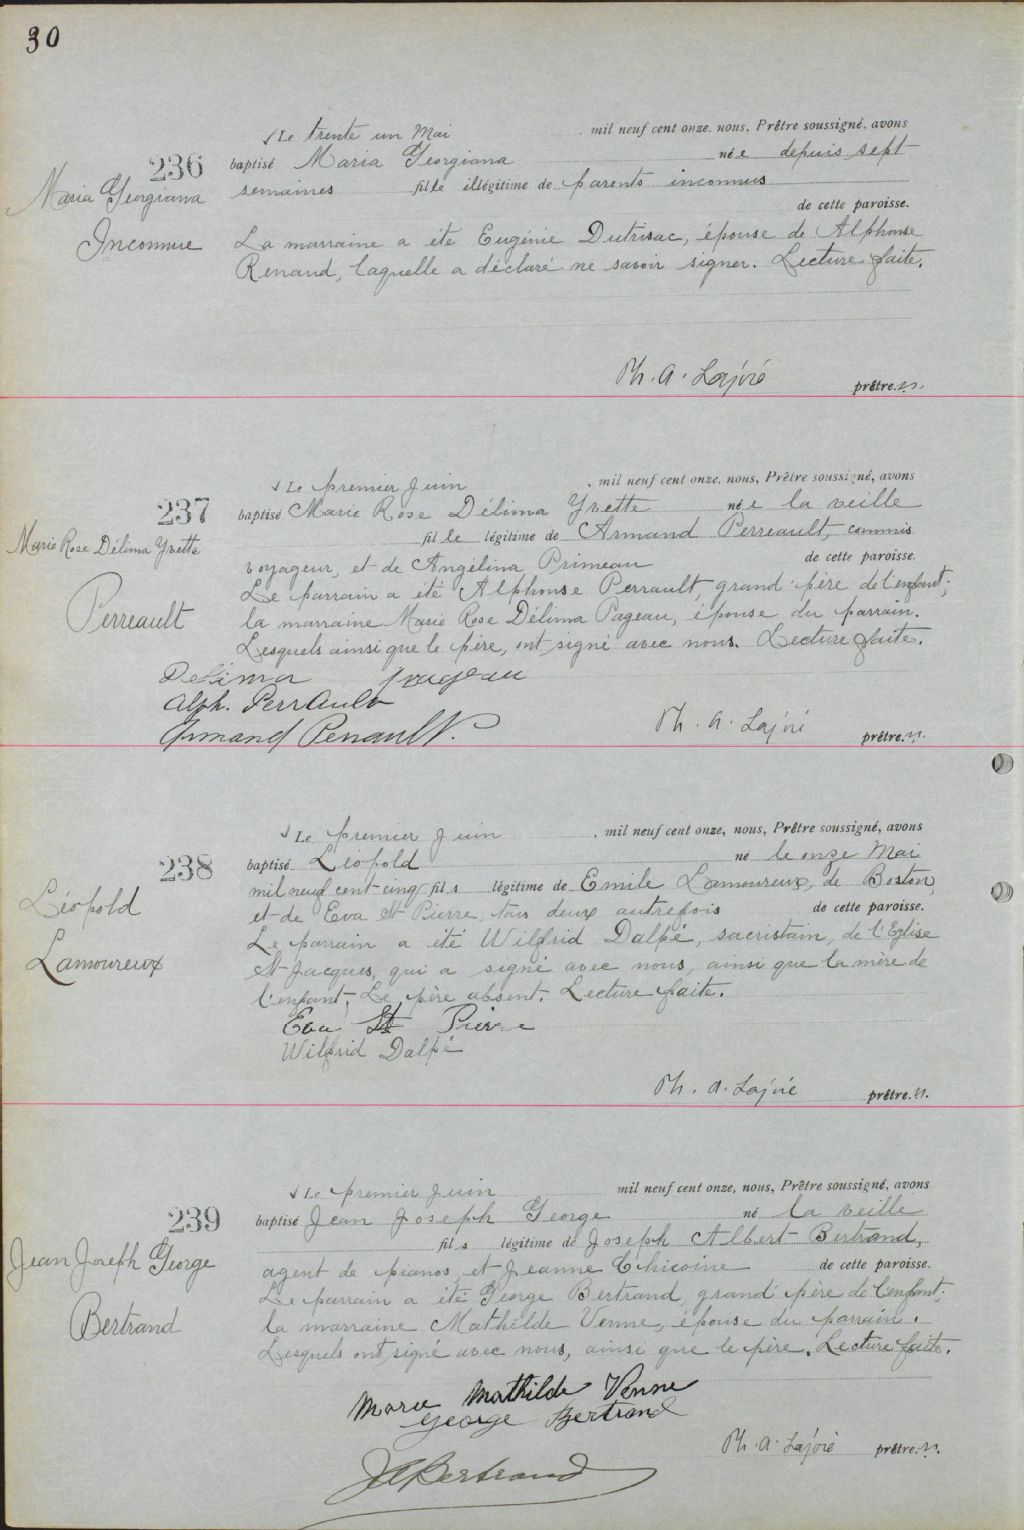 30
236
Maria Georgiana
Inconnue
Le trente un Mai mil neuf cent onze, nous, Prêtre soussigné, avons
baptisé Maria Georgiana née depuis sept
semaines fille illégitime de parents inconnus
de cette paroisse.
La marraine a été Eugénie Dutrisac, épouse de Alphonse
Renaud, laquelle a déclaré ne savoir signer. Lecture faite.
Ph. A. Lajoie prêtre.
237
Marie Rose Délima Yvette
Perreault
Le premier Juin, mil neuf cent onze, nous, Prêtre soussigné, avons
baptisé Marie Rose Délima Yvette née la veille
fille légitime de Armand Perreault, commis
voyageur, et de Angélina Primeau de cette paroisse.
Le parrain a été Alphonse Perrault, grand-père de l'enfant;
la marraine Marie Rose Délima Pageau, épouse du parrain.
Lesquels ainsi que le père, ont signé avec nous. Lecture faite.
Délima Pageau
Alph. Perrault
Armand Perrault
Ph. A. Lajoie prêtre.
238
Léopold
Lamoureux
Le premier Juin, mil neuf cent onze, nous, Prêtre soussigné, avons
baptisé Léopold né le onze Mai
mil neuf cent-cinq fils légitime de Emile Lamoureux, de Boston,
et de Eva St Pierre, tous deux autrefois de cette paroisse.
Le parrain a été Wilfrid Dalpé, sacristain, de l'Eglise
St-Jacques, qui a signé avec nous, ainsi que la mère de
l'enfant. Le père absent. Lecture faite.
Eva St Pierre
Wilfrid Dalpé
Ph. A. Lajoie prêtre.
239
Jean Joseph George
Bertrand
Le premier Juin mil neuf cent onze, nous, Prêtre soussigné, avons
baptisé Jean Joseph George né la veille
fils légitime de Joseph Albert Bertrand,
agent de pianos, et Jeanne Chicoine de cette paroisse.
Le parrain a été George Bertrand, grand'père de l'enfant;
la marraine Mathilde Venne, épouse du parrain.
Lesquels ont signé avec nous, ainsi que le père. Lecture faite.
Marie Mathilde Venne
George Bertrand
Ph. A. Lajoie prêtre.
J A Bertrand